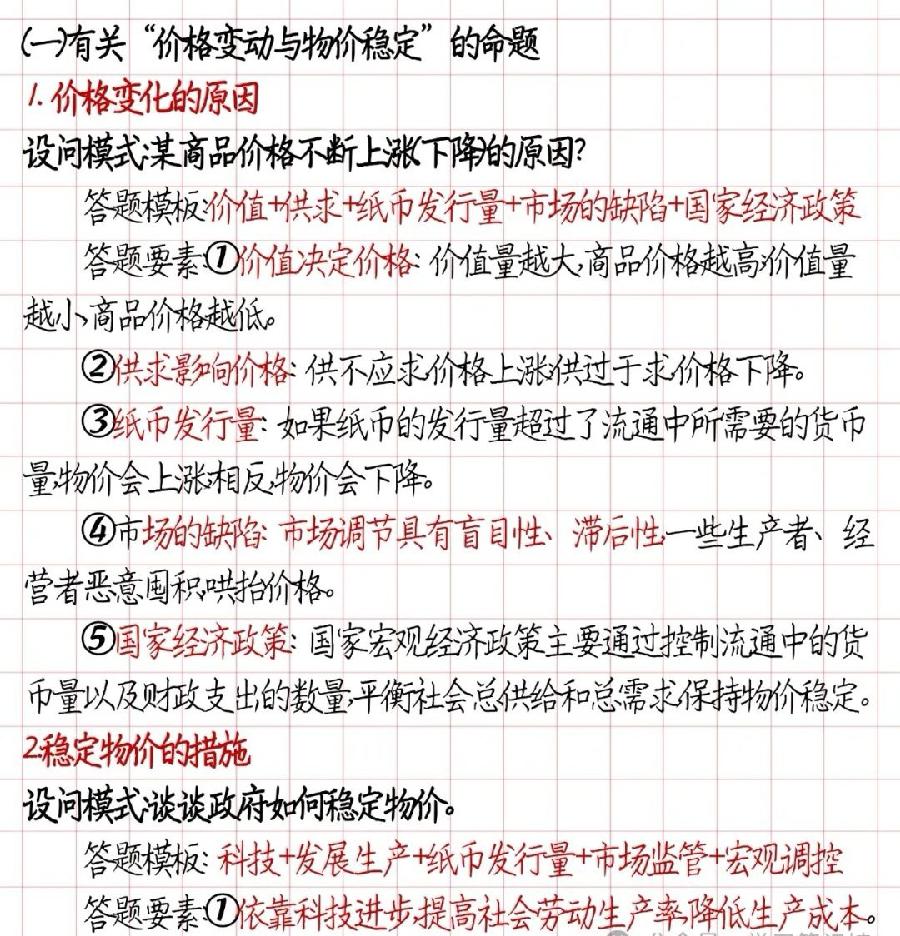 (一)有关“价格变动与物价稳定”的命题
1. 价格变化的原因
设问模式:某商品价格不断上涨(下降)的原因?
答题模板:价值+供求+纸币发行量+市场的缺陷+国家经济政策
答题要素:①价值决定价格:价值量越大,商品价格越高;价值量
越小,商品价格越低。
②供求影响价格:供不应求,价格上涨;供过于求,价格下降。
③纸币发行量:如果纸币的发行量超过了流通中所需要的货币
量,物价会上涨;相反,物价会下降。
④市场的缺陷:市场调节具有盲目性、滞后性,一些生产者、经
营者恶意囤积,哄抬价格。
⑤国家经济政策:国家宏观经济政策主要通过控制流通中的货
币量以及财政支出的数量,平衡社会总供给和总需求,保持物价稳定。
2.稳定物价的措施
设问模式:谈谈政府如何稳定物价。
答题模板:科技+发展生产+纸币发行量+市场监管+宏观调控
答题要素:①依靠科技进步,提高社会劳动生产率,降低生产成本。